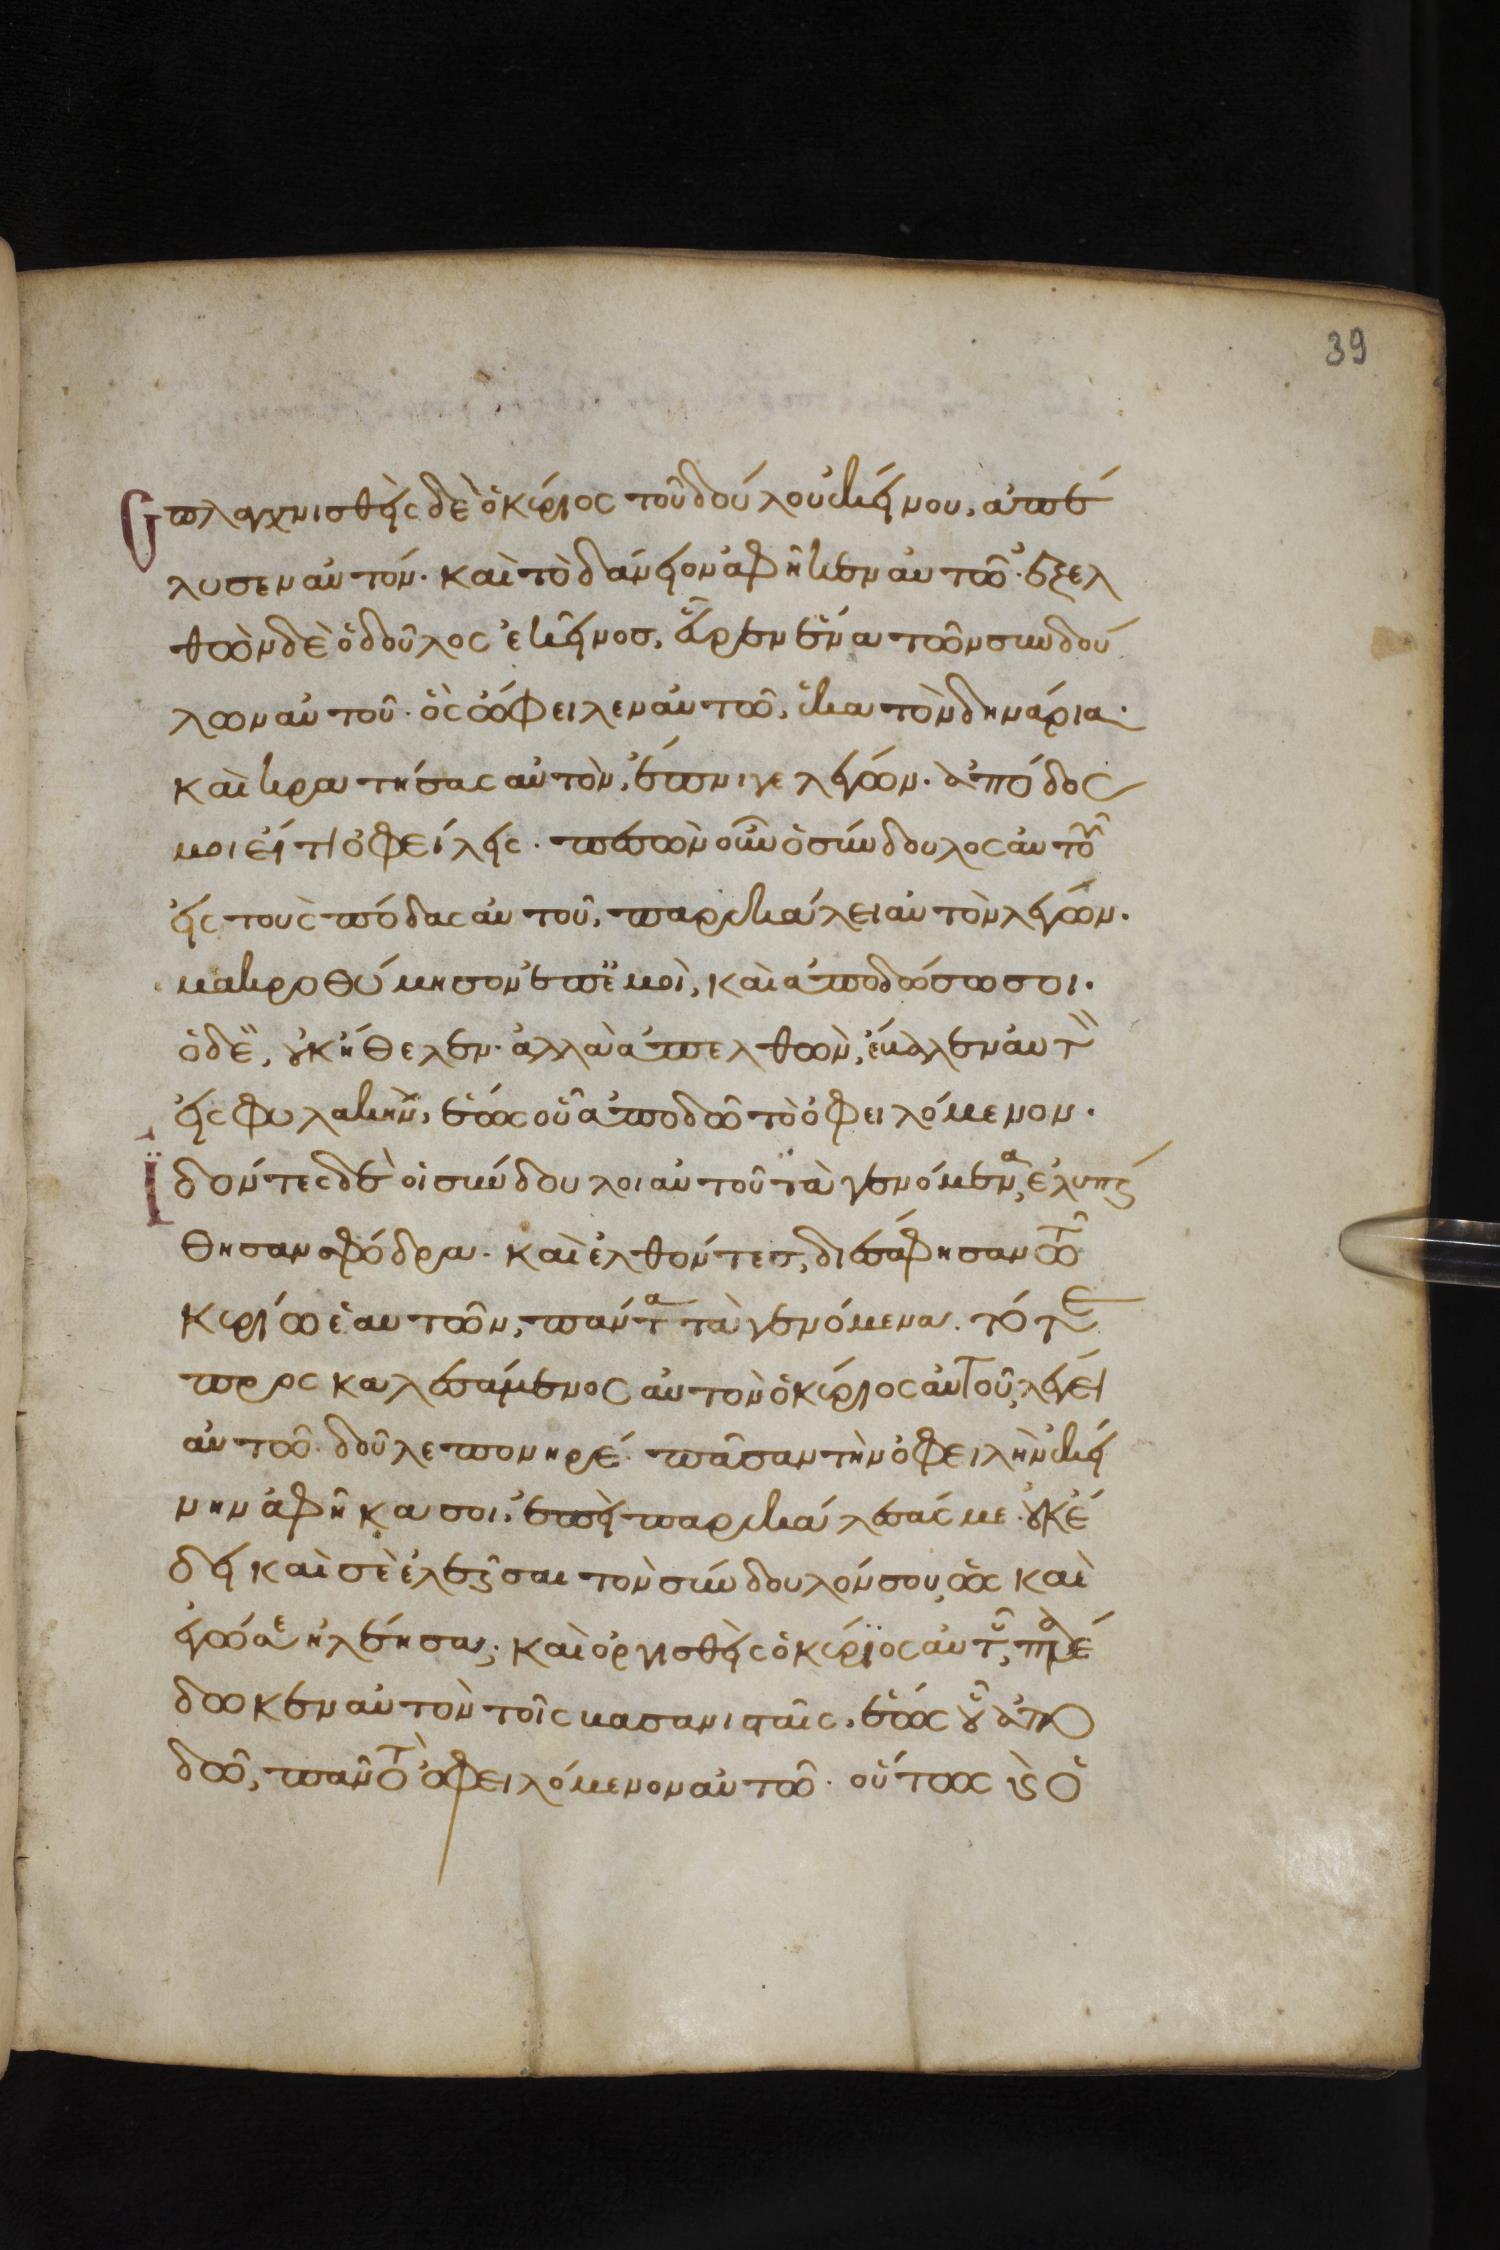 39
Σπλαγχνισθεὶς δὲ ὁ κύριος τοῦ δούλου ἐκείνου, ἀπέ
λυσεν αὐτόν· καὶ τὸ δάνειον ἀφῆκεν αὐτῶ· ἐξελ
θὼν δὲ ὁ δοῦλος ἐκεῖνος, εὗρεν ἕνα τῶν συνδού
λων αὐτοῦ· ὃς ὤφειλεν αὐτῶ, ἑκατὸν δηνάρια·
καὶ κρατήσας αὐτὸν, ἔπνιγε λέγων· ἀπόδος
μοι εἴ τι ὀφείλεις· πεσὼν οὖν ὁ σύνδουλος αὐτοῦ
εἰς τοὺς πόδας αὐτοῦ, παρεκάλει αὐτὸν λέγων·
μακροθύμησον ἐπ ἐμοὶ, καὶ ἀποδώσω σοι·
ὁ δὲ, οὐκ ἤθελεν· ἀλλὰ ἀπελθὼν, ἔβαλεν αὐτὸν
εἰς φυλακὴν, ἕως οὗ ἀποδῶ τὸ ὀφειλόμενον·
Ἰδόντες δὲ οἱ σύνδουλοι αὐτοῦ τὰ γενόμενα, ἐλυπή
θησαν σφόδρα· καὶ ἐλθόντες, διεσάφησαν τῶ
κυρίω ἑαυτῶν, πάντα τὰ γενόμενα· τότε
προσκαλεσάμενος αὐτὸν ὁ κύριος αὐτοῦ, λέγει
αὐτῶ· δοῦλε πονηρέ· πᾶσαν τὴν ὀφειλὴν ἐκεί
νην ἀφῆκα σοι, ἐπεὶ παρεκάλεσάς με· οὐκ ἔ
δει καὶ σὲ ἐλεῆσαι τὸν σύνδουλόν σου, ὡς καὶ
ἐγώ σε ἠλέησα; καὶ ὀργισθεὶς ὁ κύριος αὐτοῦ, παρέ
δωκεν αὐτὸν τοῖς βασανισταῖς, ἕως οὗ ἀπο
δῶ, πᾶν τὸ ὀφειλόμενον αὐτῶ· οὕτως καὶ ὁ